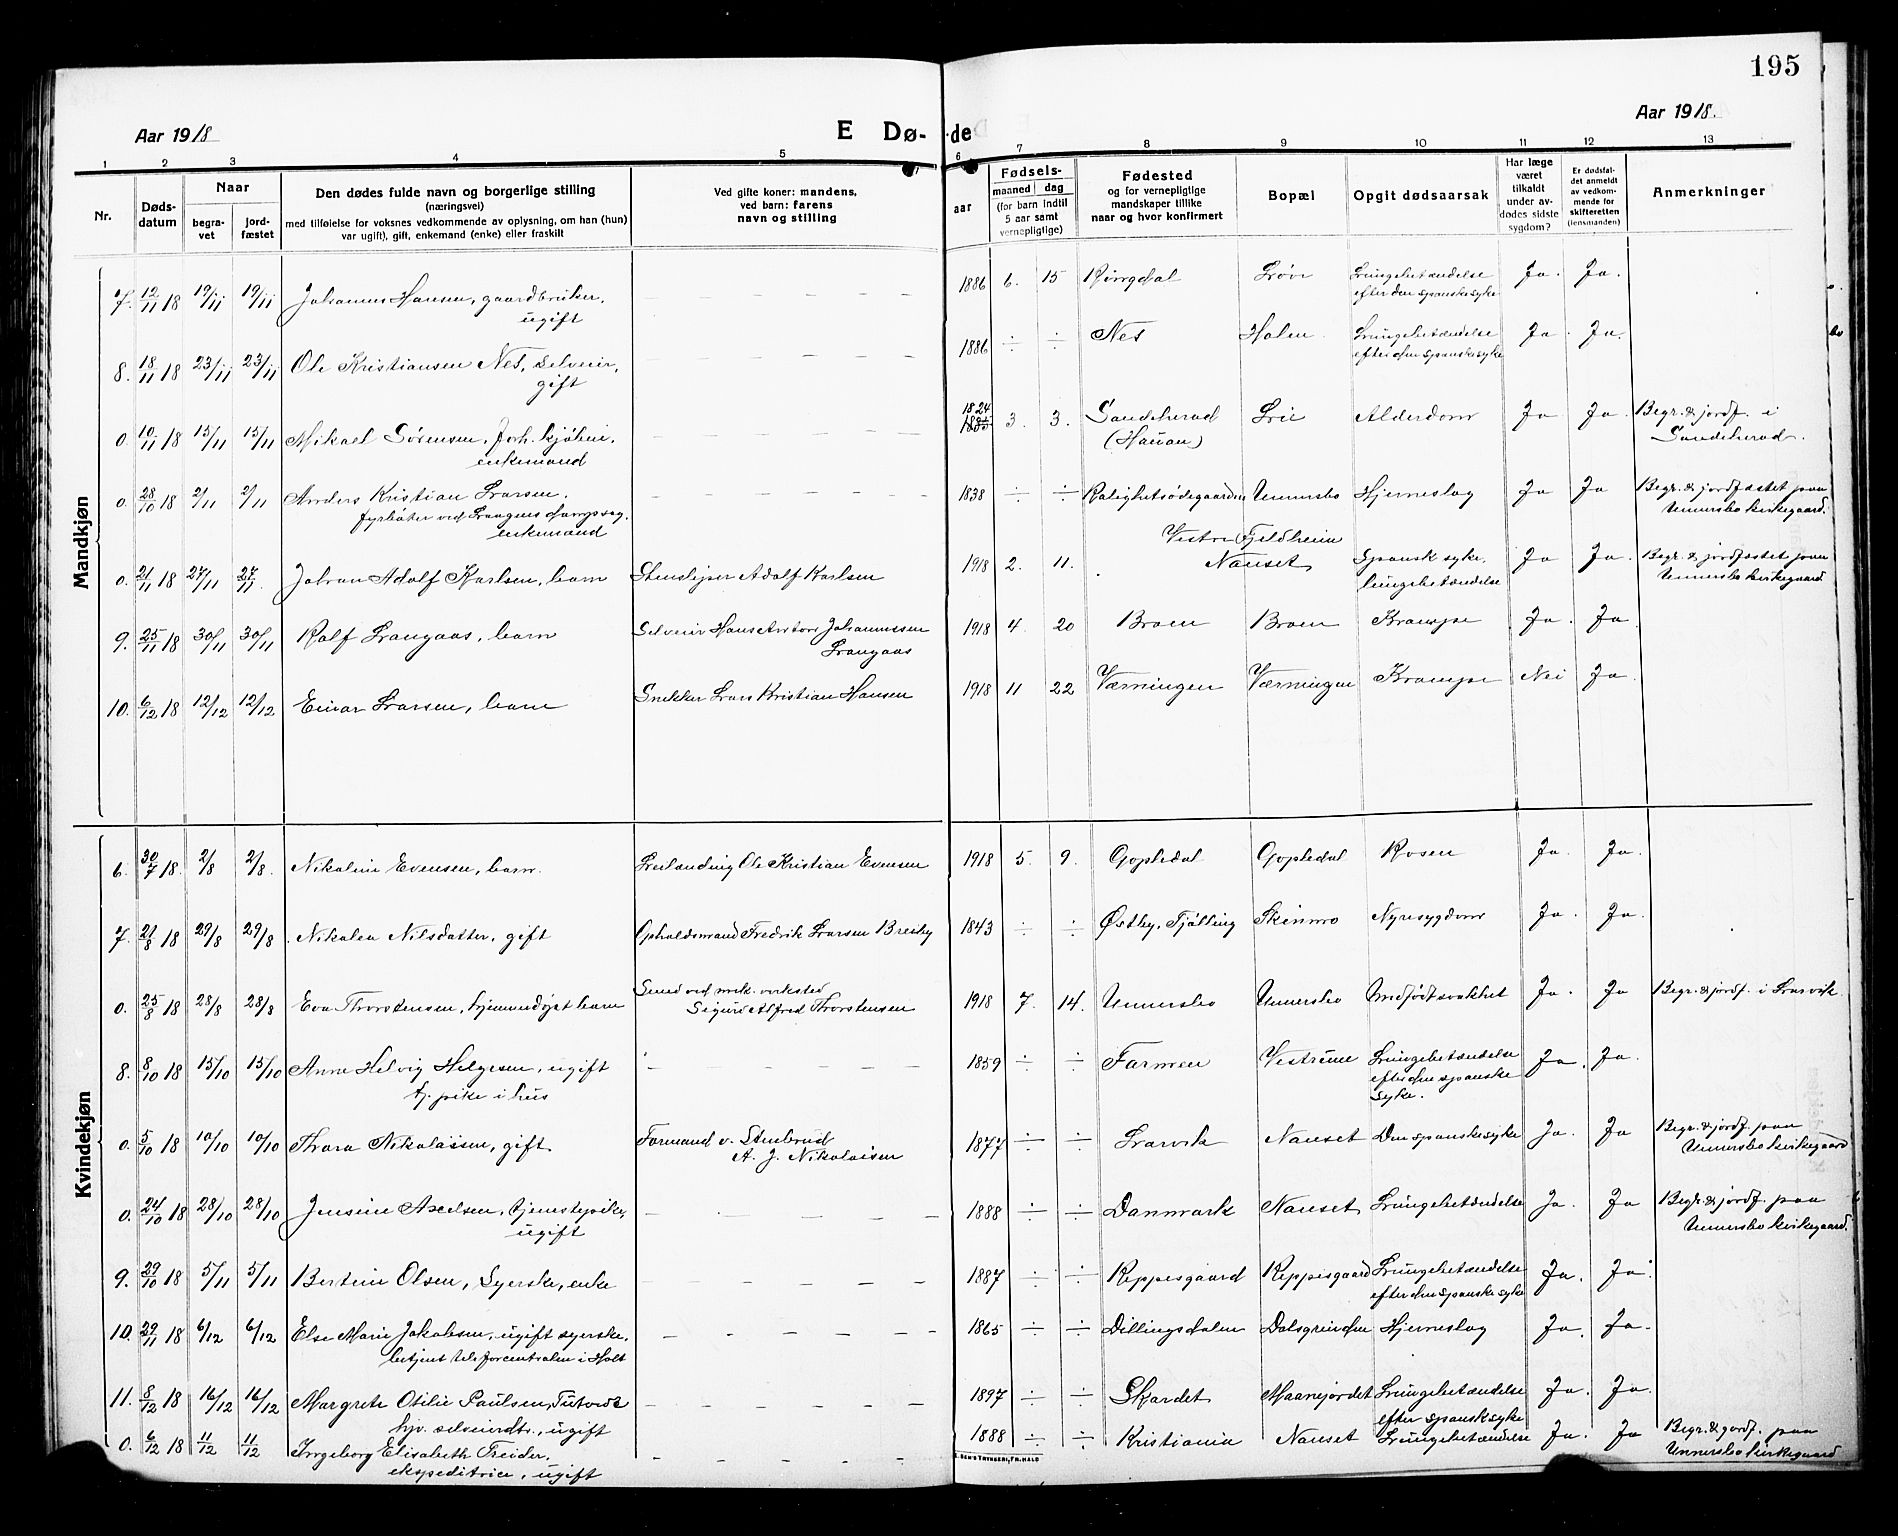 195
Aar 1918
E Dø-
de
Aar 1918.
1 2 3 4 5 6 7 8 9 10 11 12 13
Nr.
Døds-
datum
Naar
begra-
vet
jord-
fæstet
Den dødes fulde navn og borgerlige stilling
(næringsvei)
med tilføielse for voksnes vedkommende av oplysning, om han (hun)
var ugift), gift, enkemand (enke) eller fraskilt
Ved gifte koner: mandens,
ved barn: farens
navn og stilling
Fødsels-
aar
maaned dag
(for barn indtil
5 aar samt
vernepligtige)
Fødested
og for vernepligtige
mandskaper tillike
naar og hvor konfirmert
Bopæl
Opgit dødsaarsak
Har læge
været
tilkaldt
under av-
dødes sidste
sygdom?
Er dødsfal-
det anmeldt
av vedkom-
mende for
skifteretten
(lensmanden)
Anmerkninger
Mandkjøn
7. 12/11 18 19/11 19/11 Johannes Hansen, gaardbruker, — — — — — 1886 6. 15 Ringdal Ja. Ja.
Lungebetændelse
efter den spanske syke
ugift
8. 18/11 18 23/11 23/11 Ole Kristiansen Nes, selveier, — — — — — 1886 ÷ ÷ Nes Holm. Lungebetændelse Ja. Ja.
efter den spanske syke
gift
0. 10/11 18 15/11 15/11 Mikael Sørensen, forh. kjøbm., — — — — — 1824 3. 3. Sandeherad Lie Alderdom Ja Ja Begr. & jordf. i
enkemand (Hauan) Sandeherad.
0. 28/10 18 2/11 2/11 Anders Kristian Larsen. — — — — — 1838 ÷ ÷ Ralighetsødegaarden Unnersbo Hjerneslag Ja Ja Begr. & jordfæstet paa
fyrbøter ved Laagens dampsag, Unnersbo kirkegaard.
enkemand
0. 21/11 18 27/11 27/11 Johan Adolf Karlsen, barn Stenslejper Adolf Karlsen 1918 2. 11. Vestre Fjeldheim
Nanset Spansk syke, Ja Ja. Begr. & jordfæstet paa
lungebetændelse Unnersbo kirkegaard
9. 25/11 18 30/11 30/11 Ralf Langaas, barn Selveier Hans Anton Johannessen 1918 4. 20 Broen Broen Krampe Ja. Ja.
Langaas
10. 6/12 18 12/12 12/12 Einar Larsen, barn Snekker Lars Kristian Hansen 1918 11 22 Værningen Værningen Krampe Nei Ja.
Kvindekjøn
6. 30/7 18. 2/8 2/8. Nikoline Evensen, barn. Leilænding Ole Kristian Evensen 1918 5. 9. Gopledal Gopledal Rosen Ja. Ja.
7. 21/8 18 29/8 29/8 Nikolea Nilsdatter, gift Opholdsmand Fredrik Larsen Bresky 1843 ÷ ÷ Østby, Tjølling Skinmo Nyresygdom Ja. Ja.
0. 25/8 18 28/8 28/8 Eva Thorstensen, hjemmedøpt barn Smed ved mek. verksted 1918 7. 14. Unnersbo Unnersbo Medfødt svakhet Ja. Ja Begr. & jordf. i Larvik.
Sigurd Alfred Thorstensen
8. 8/10 18 15/10 15/10 Anne Helvig Helgesen, ugift — — — — — 1859 ÷ ÷ Farmen Vestrum Lungebetændelse Ja. Ja.
tj. pike i hus efter den spanske
syke.
0. 5/10 18 10/10 10/10 Thora Nikolaisen, gift. Formand v. Stenbrud 1877 ÷ ÷ Larvik Nanset Den spanske syke Ja. Ja Begr. & jordf. paa
A. J. Nikolaisen Unnersbo kirkegaard
0. 24/10 18 28/10 28/10 Jensine Axelsen, tjenestepike, — — — — — 1888 ÷ ÷ Danmark Nanset Lungebetændelse Ja. Ja Begr. & jordf. paa
ugift Unnersbo kirkegaard.
9. 29/10 18 5/11 5/11 Bertine Olsen, Syerske, enke — — — — — 1887 ÷ ÷ Reppesgaard Reppesgaard Lungebetændelse Ja. Ja.
efter den spanske syke
10. 29/11 18 6/12 6/12 Else Marie Jakobsen, ugift syerske, — — — — — 1865 ÷ ÷ Dillingsdalen Dalsgrinden Hjerneslag Ja. Ja.
betjent telefoncentralen i Holt
11. 8/12 18 16/12 16/12 Margrete Otilie Paulsen, — — — — — 1897 ÷ ÷ Skardet Maanejordet Lungebetændelse Ja. Ja.
hjv. selveierdtr., ugift efter spansk syke
0. 6/12 18 11/12 11/12 Ingeborg Elisabeth Treider, — — — — — 1888 ÷ ÷ Kristiania Nanset Lungebetændelse Ja. Ja Begr. & jordf. paa
ekspeditrice, ugift Unnersbo kirkegaard